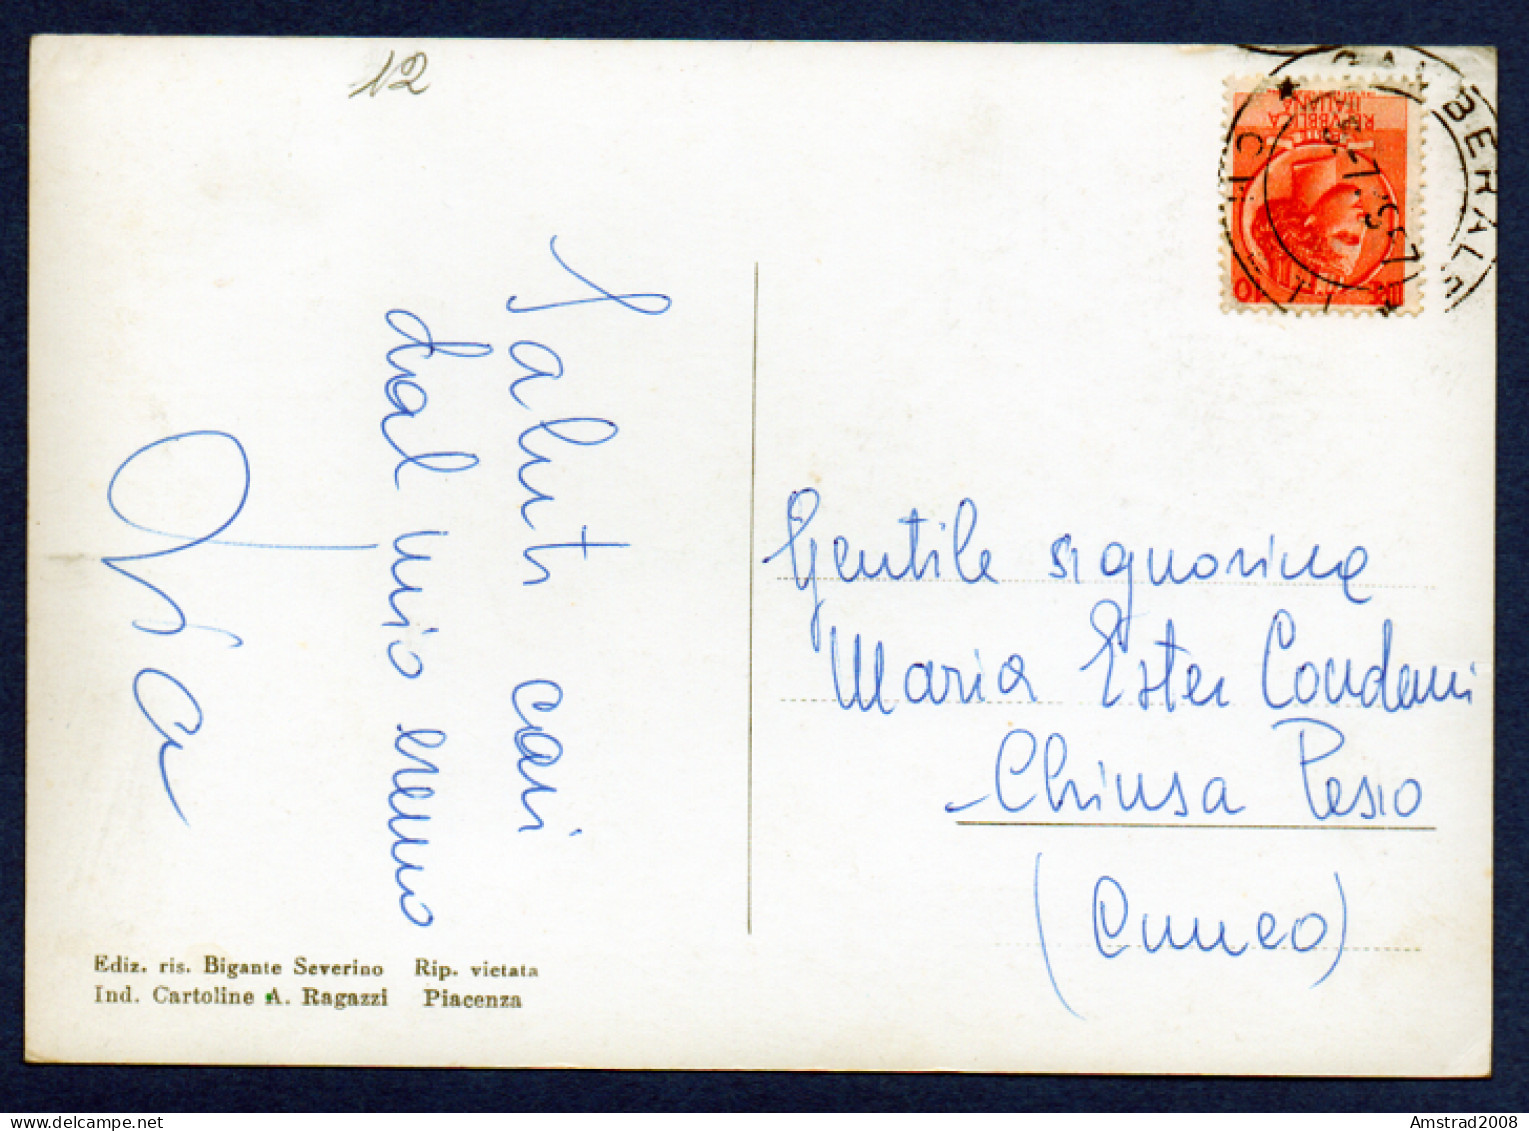 12
Saluti cari
dal mio eremo
Gentile signorina
Maria Ester Condemi
Chiusa Pesio
(Cuneo)
REPVBBLICA
ITALIANA
10
LIRE
BERALE
CH
Ediz. ris. Bigante Severino Rip. vietata
Ind. Cartoline A. Ragazzi Piacenza
Amstrad2008